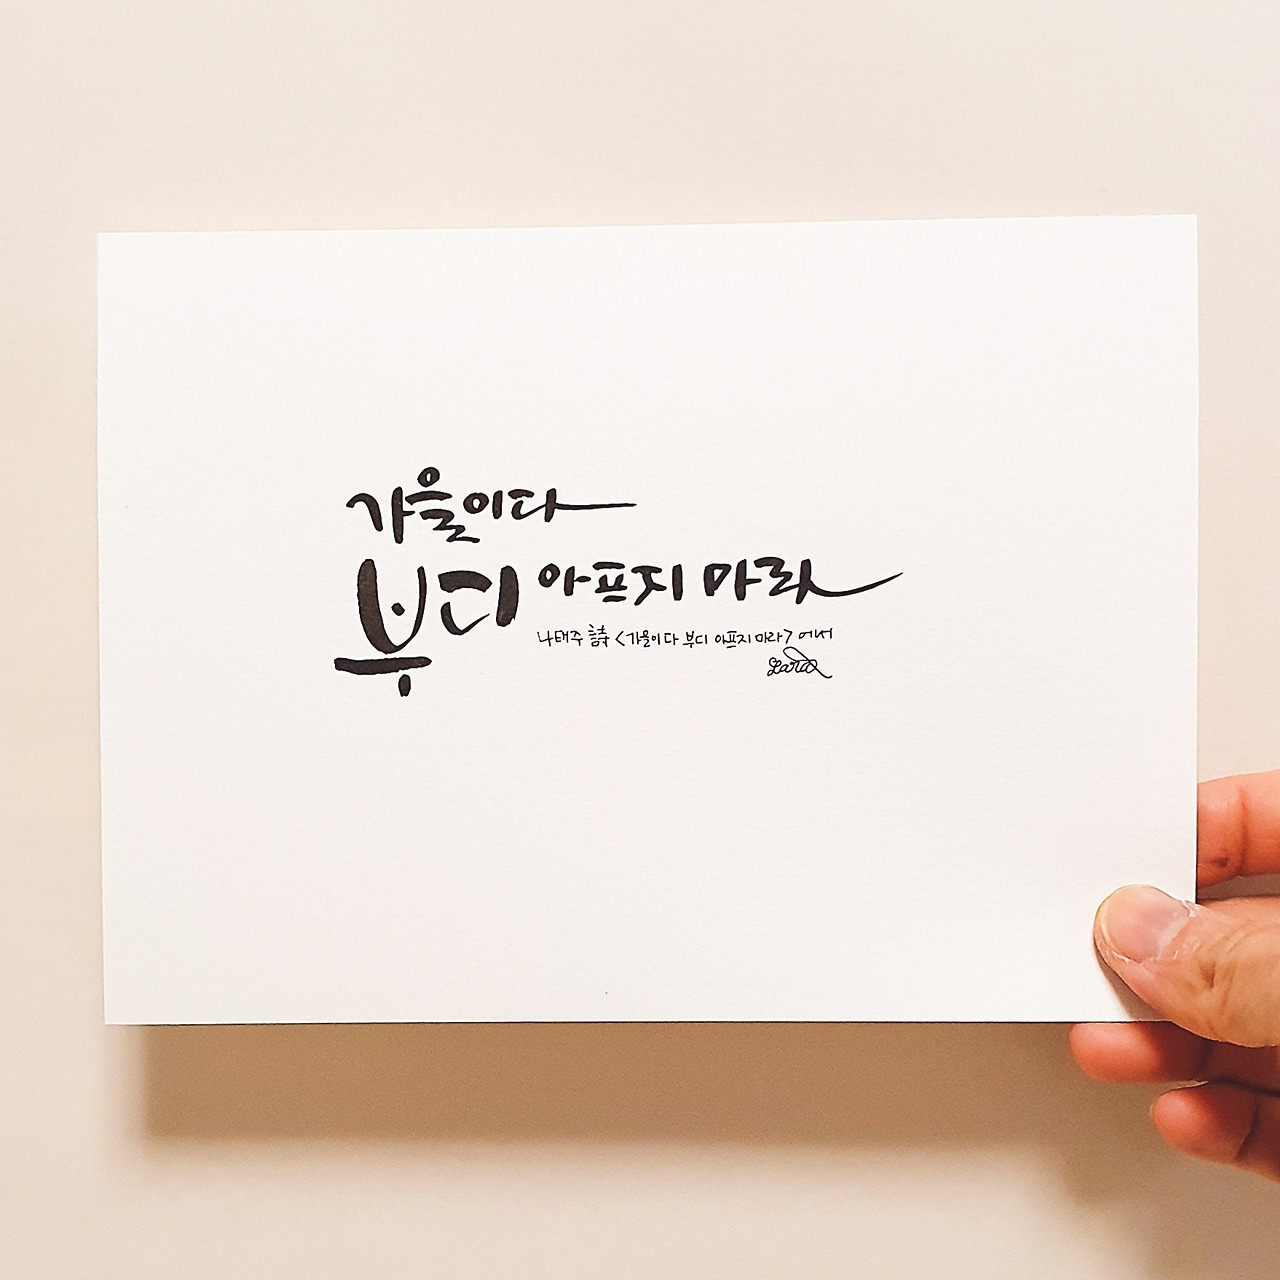 가을이다
부디 아프지 마라
나태주 詩 <가을이다 부디 아프지 마라> 에서
Lara